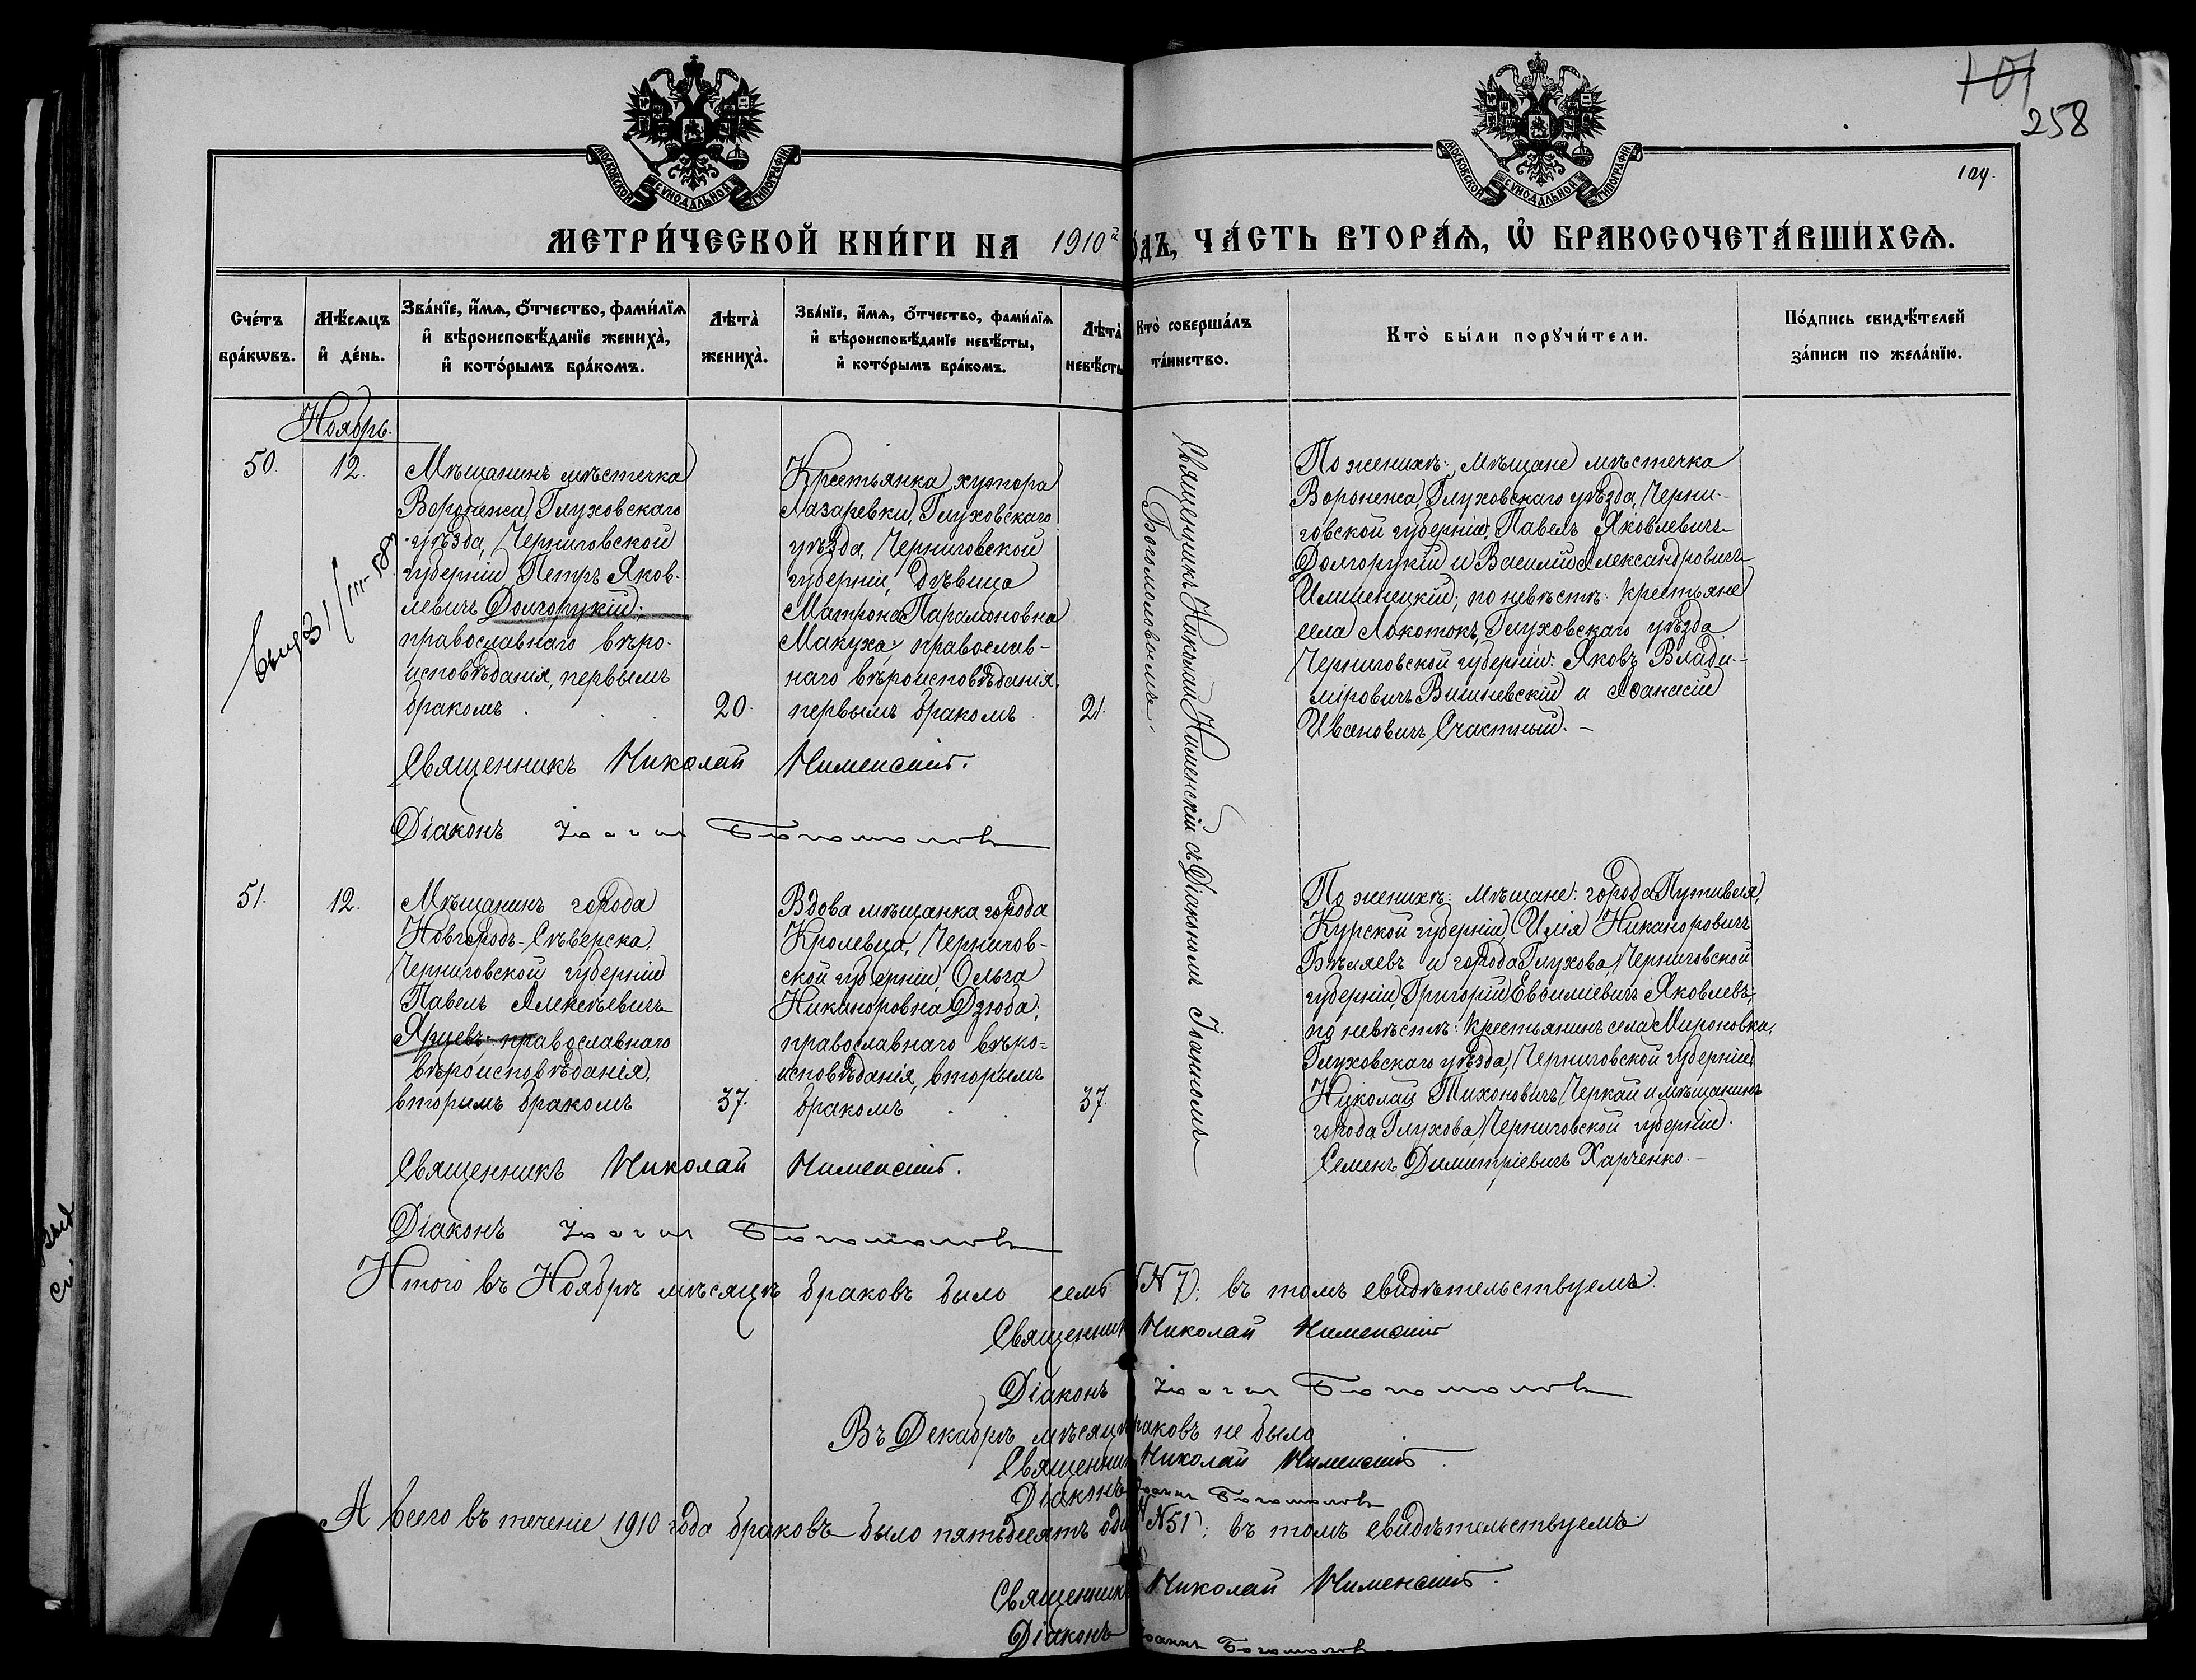 101
258
109.
МОСКОВСКОЙ СУНОДАЛЬНОЙ ТИПОГРАФІИ
МОСКОВСКОЙ СУНОДАЛЬНОЙ ТИПОГРАФІИ
МЕТРИ́ЧЕСКОЙ КНИ́ГИ НА 1910й ГОДЪ, ЧА́СТЬ ВТОРА́Я, Ѡ БРАКОСОЧЕТА́ВШИХСЯ.
Сче́тъ
бра́кωвъ.
Мѣ́сяцъ
и҆ де́нь.
Зва́нїе, и҆́мѧ, ѻ҆́тчество, фами́лїѧ
и҆ вѣроисповѣ́данїе жениха̀,
и҆ кото́рымъ бра́комъ.
Лѣта̀
жениха̀.
Зва́нїе, и҆́мѧ, ѻ҆́тчество, фами́лїѧ
и҆ вѣроисповѣ́данїе невѣ́сты,
и҆ кото́рымъ бра́комъ.
Лѣта̀
невѣ́сты
Кто̀ соверша́лъ
та́инство.
Кто̀ бы́ли порꙋчи́тели.
По́дпись свидѣ́телей
за́писи по жела́нїю.
Ноябрь.
50.
12.
Мѣщанинъ мѣстечка
Воронежа, Глуховскаго
уѣзда, Черниговской
губерніи, Петръ Яков-
левичъ Долгорукій;
православнаго вѣро-
исповѣданія, первымъ
бракомъ
20.
Крестьянка хутора
Лазаревки, Глуховскаго
уѣзда, Черниговской
губерніи, дѣвица
Матрона Парамоновна
Макуха, православ-
наго вѣроисповѣданія,
первымъ бракомъ
21.
Священникъ Николай Нименскій съ Діакономъ Іоанномъ
Богомоловымъ
По женихѣ: мѣщане мѣстечка
Воронежа, Глуховскаго уѣзда, Черни-
говской губерніи, Павелъ Яковлевичъ
Долгорукій и Василій Александровичъ
Ильшенецкій; по невѣстѣ: крестьяне
села Локотокъ, Глуховскаго уѣзда
Черниговской губерніи: Яковъ Влади-
міровичъ Вишневскій и Аѳанасій
Ивановичъ Счастный. –
31/III-58
Священникъ Николай Нименскій.
Діаконъ Іоаннъ Богомоловъ
51.
12.
Мѣщанинъ города
Новгородъ-Сѣверска,
Черниговской губерніи
Павелъ Алексѣевичъ
Ярцевъ, православнаго
вѣроисповѣданія,
вторымъ бракомъ
37.
Вдова мѣщанка города
Кролевца, Чернигов-
ской губерніи, Ольга
Никаноровна Дзюба,
православнаго вѣро-
исповѣданія, вторымъ
бракомъ
37.
По женихѣ: мѣщане: города Путивля,
Курской губерніи, Илія Никаноровичъ
Бѣляевъ и города Глухова, Черниговской
губерніи, Григорій Евѳиміевичъ Яковлевъ;
по невѣстѣ: крестьянинъ села Мироновки,
Глуховскаго уѣзда, Черниговской губерніи
Николай Тихоновичъ Черкай и мѣщанинъ
города Глухова, Черниговской губерніи.
Семенъ Димитріевичъ Харченко. –
Священникъ Николай Нименскій.
Діаконъ Іоаннъ Богомоловъ
Итого въ Ноябрѣ мѣсяцѣ браковъ было семь (№ 7); въ томъ свидѣтельствуемъ.
Священникъ Николай Нименскій
Діаконъ Іоаннъ Богомоловъ
Въ Декабрѣ мѣсяцѣ браковъ не было
Священникъ Николай Нименскій.
Діаконъ Іоаннъ Богомоловъ
А всего въ теченіе 1910 года браковъ было пятьдесятъ одинъ № 51); въ томъ свидѣтельствуемъ
Священникъ Николай Нименскій.
Діаконъ Іоаннъ Богомоловъ